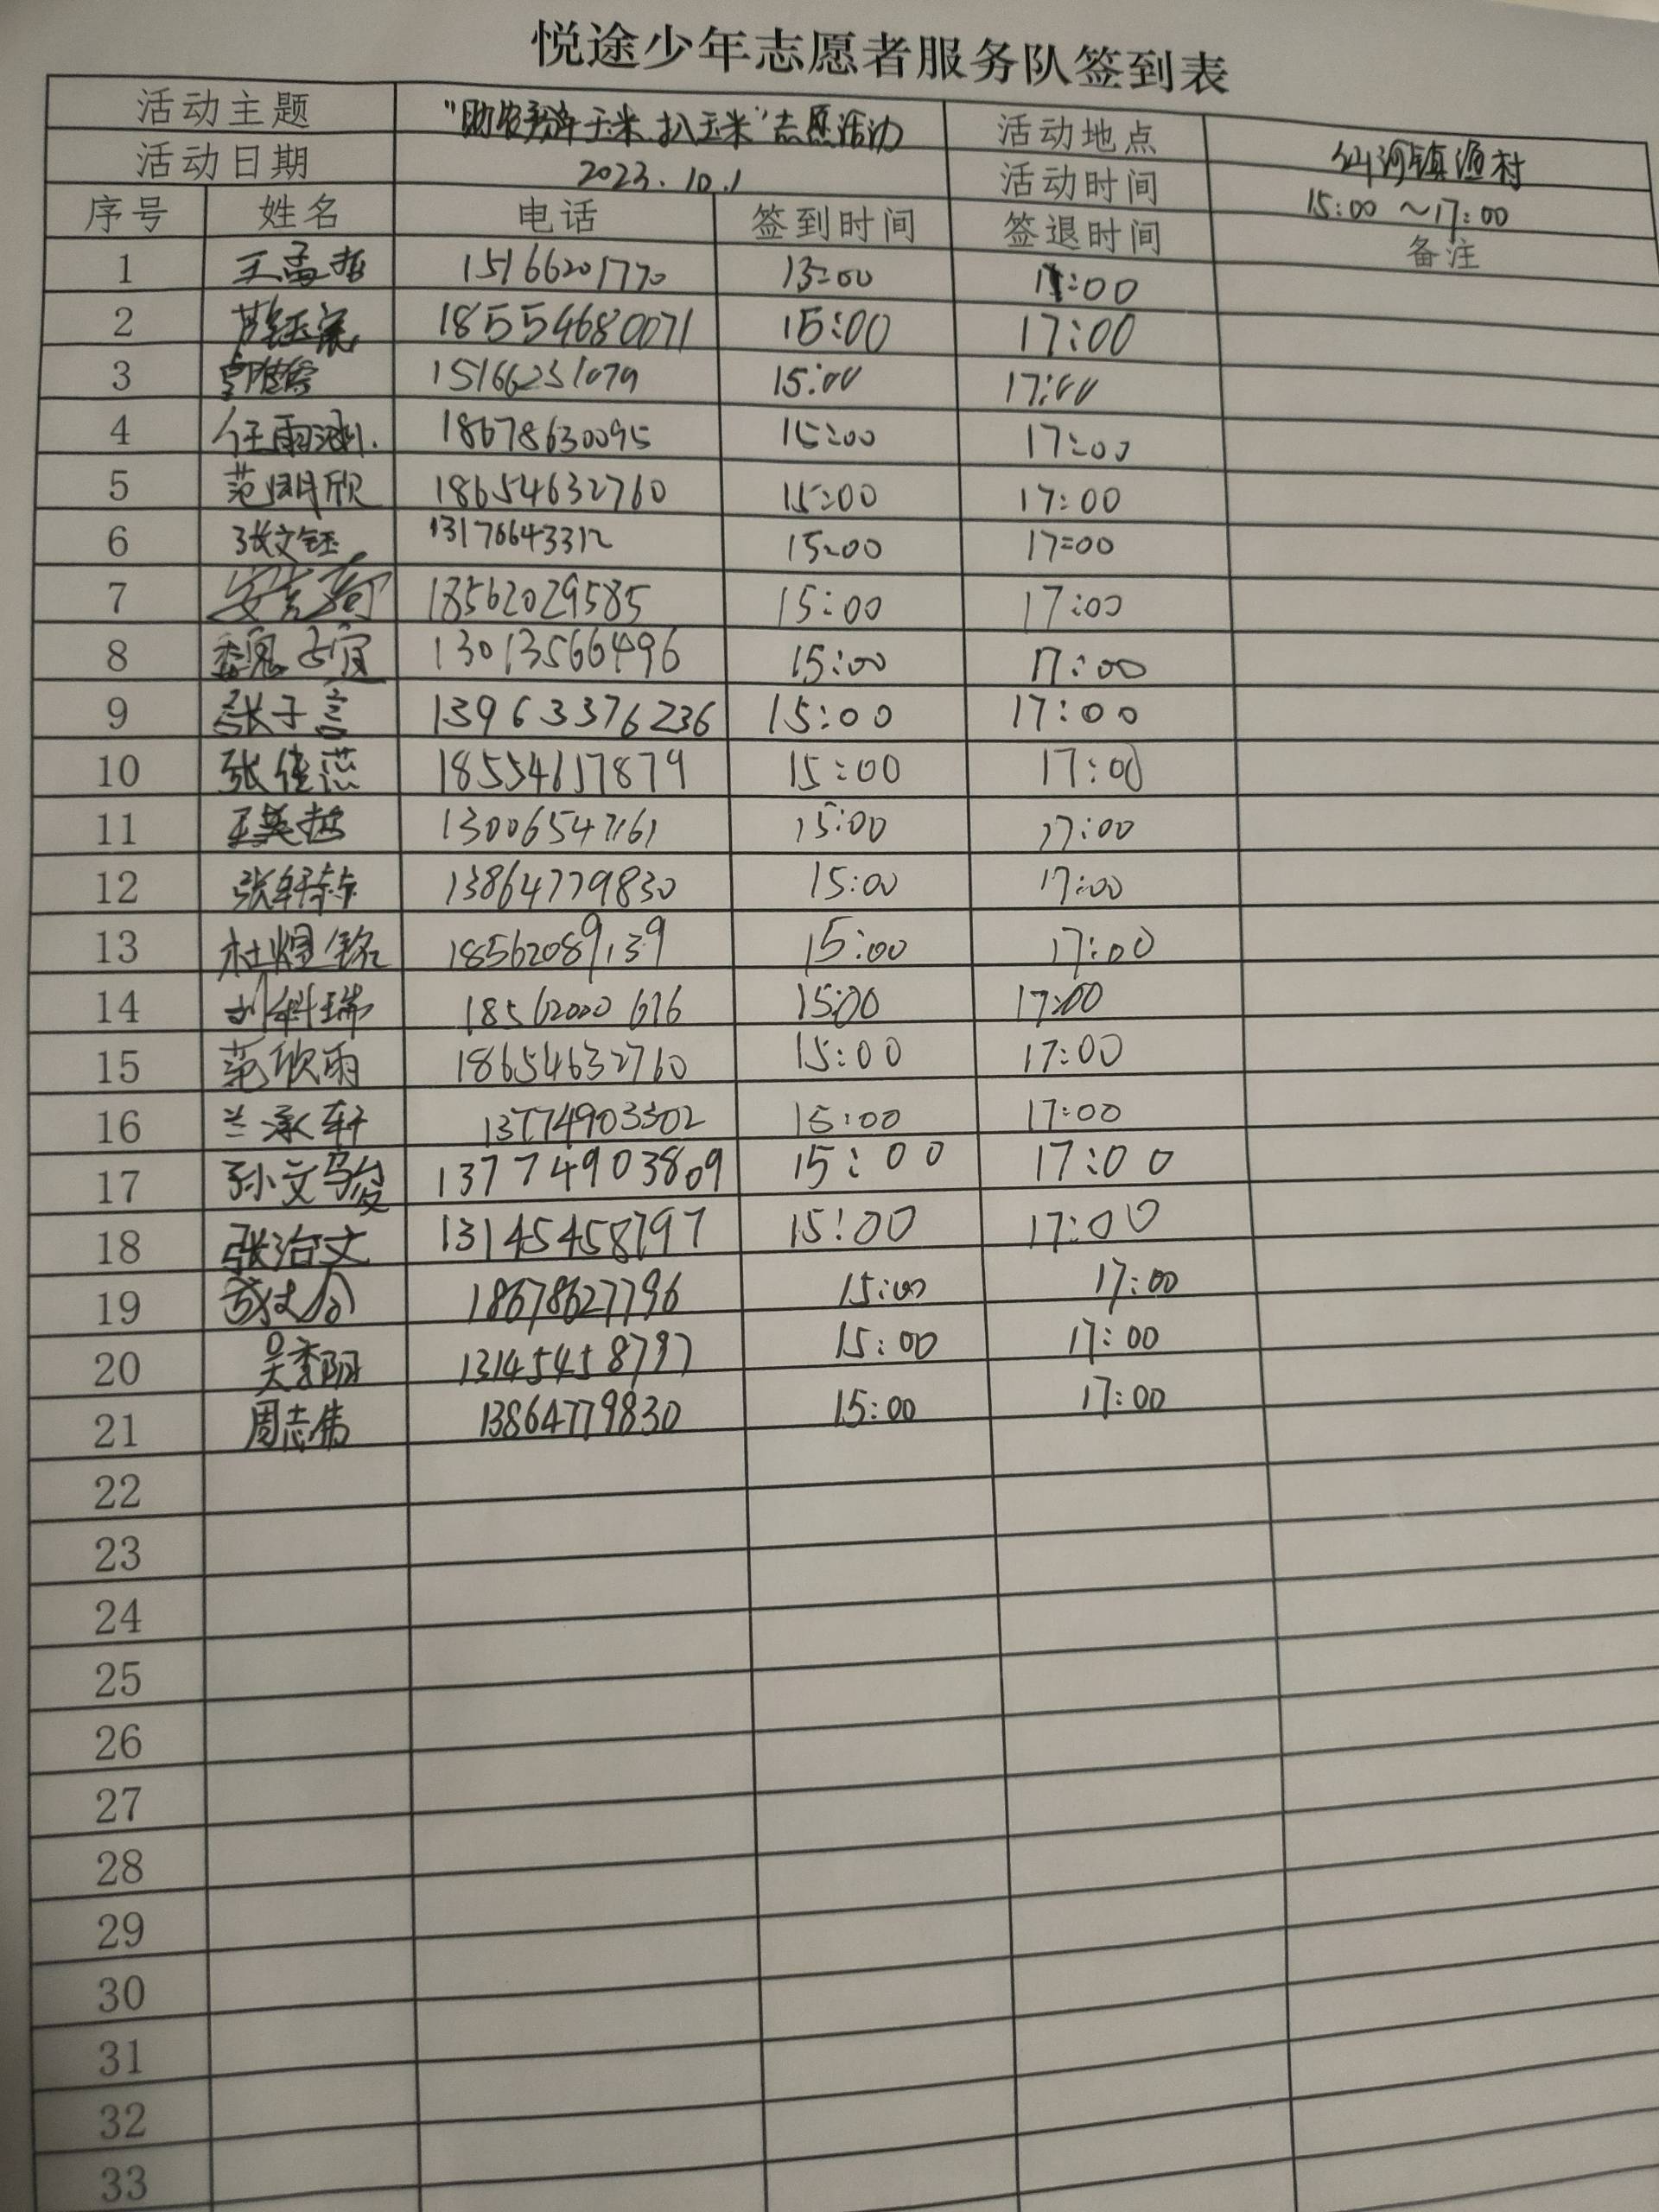 悦途少年志愿者服务队签到表
活动主题 "助农掰玉米 扒玉米"志愿活动 活动地点 仙河镇渔村
活动日期 2023.10.1 活动时间 15:00～17:00
序号 姓名 电话 签到时间 签退时间 备注
1 王孟哲 15166201770 15:00 17:00
2 18554680071 15:00 17:00
3 15166231079 15:00 17:00
4 任雨涵 18678630095 15:00 17:00
5 范明欣 18654632760 15:00 17:00
6 张文钰 13176643312 15:00 17:00
7 18562029585 15:00 17:00
8 魏子宜 13013566496 15:00 17:00
9 张子言 13963376236 15:00 17:00
10 张佳蕊 18554617879 15:00 17:00
11 王英哲 13006547161 15:00 17:00
12 张轩赫 13864779830 15:00 17:00
13 杜煜铭 18562089139 15:00 17:00
14 刘科瑞 18562000676 15:00 17:00
15 范欣雨 18654632760 15:00 17:00
16 兰承轩 13774903302 15:00 17:00
17 孙文骏 13774903809 15:00 17:00
18 张治文 13145458797 15:00 17:00
19 18678627796 15:00 17:00
20 吴季阳 13145458797 15:00 17:00
21 周志伟 13864779830 15:00 17:00
22
23
24
25
26
27
28
29
30
31
32
33